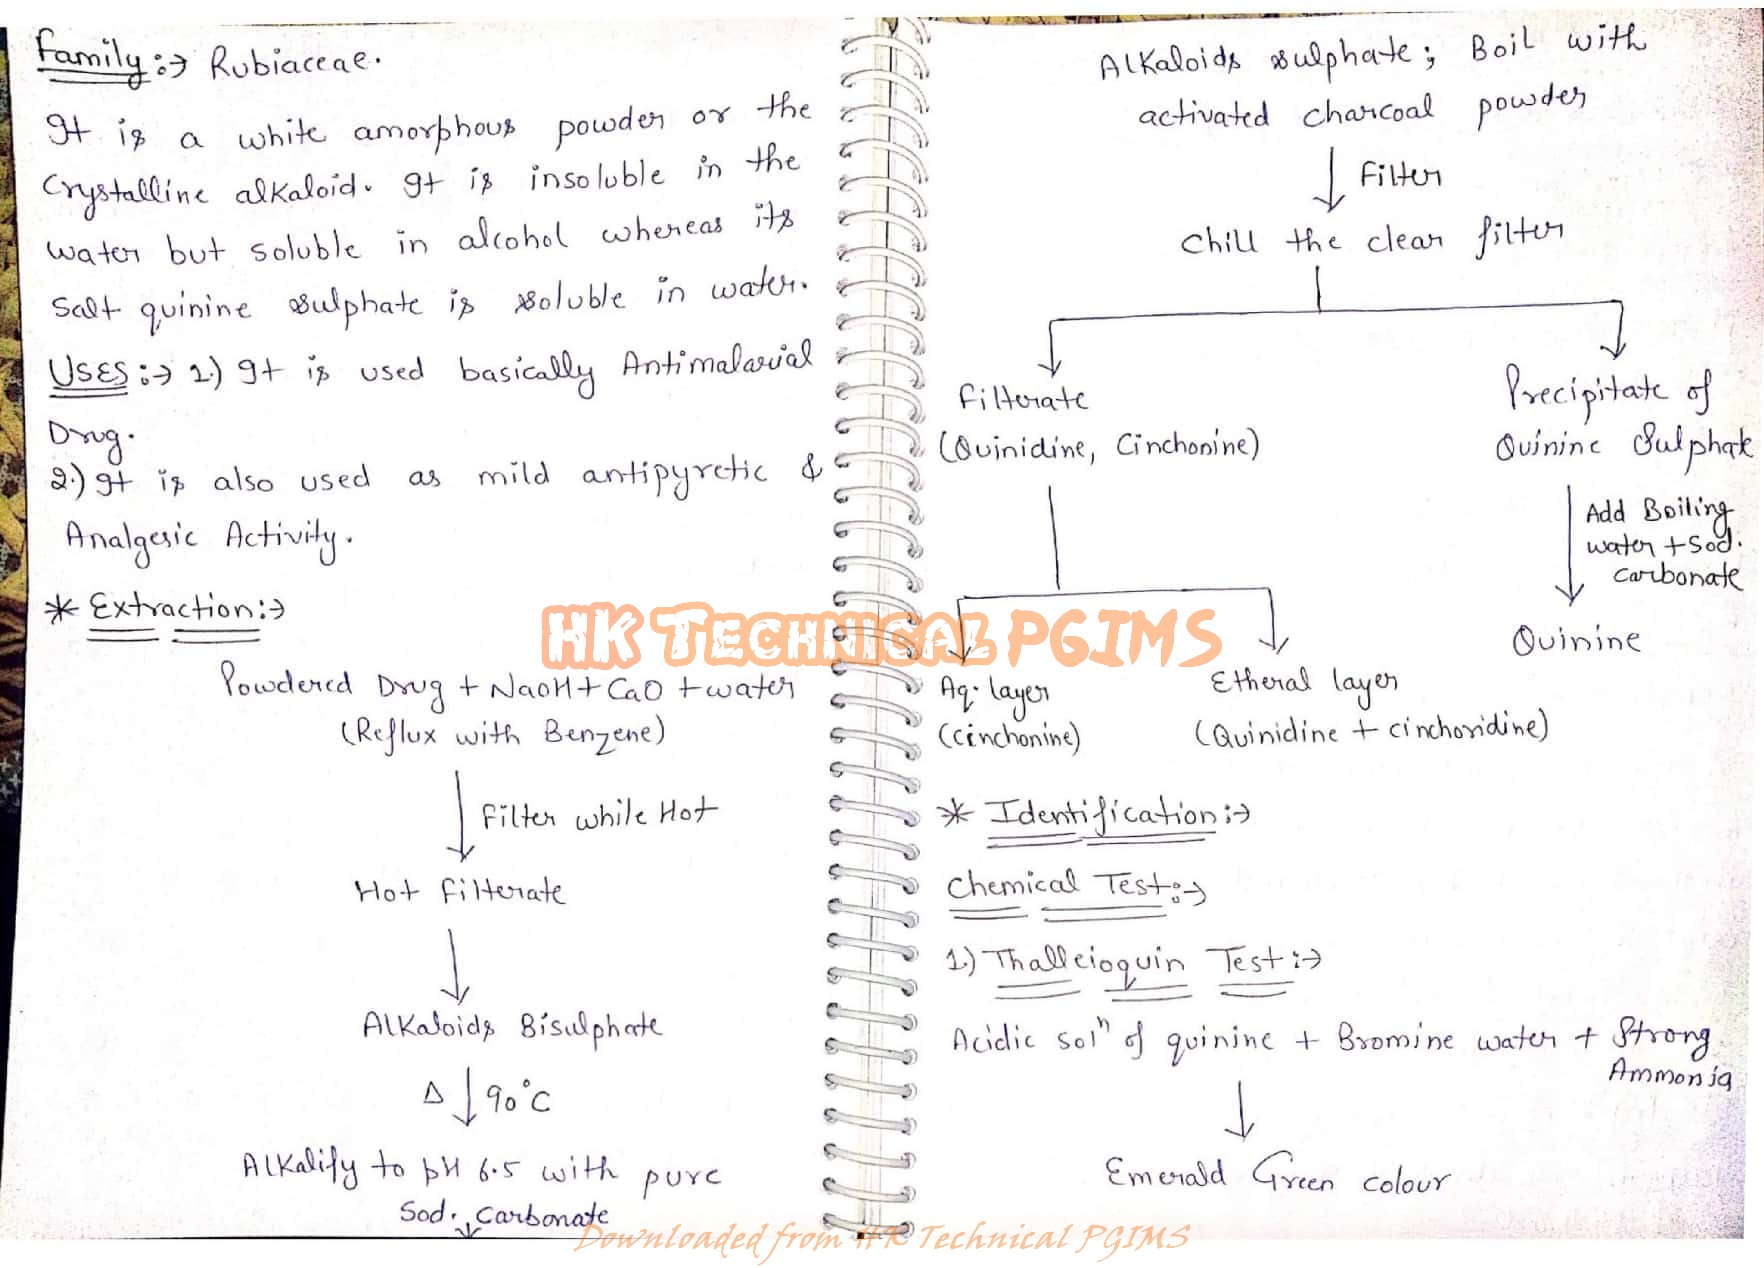 Family :→ Rubiaceae.
It is a white amorphous powder or the
Crystalline alkaloid. It is insoluble in the
water but soluble in alcohol whereas its
Salt quinine sulphate is soluble in water.
USES :→ 1.) It is used basically Antimalarial
Drug.
2.) It is also used as mild antipyretic &
Analgesic Activity.
* Extraction :→
Powdered Drug + NaOH + CaO + water
(Reflux with Benzene)
Filter while Hot
Hot filterate
Alkaloids Bisulphate
Δ ↓ 90°C
Alkalify to pH 6.5 with pure
Sod. Carbonate
Alkaloids sulphate; Boil with
activated charcoal powder
↓ Filter
Chill the clear filter
Filterate
(Quinidine, Cinchonine)
Precipitate of
Quinine Sulphate
Add Boiling
water + Sod.
carbonate
Quinine
Aq. layer
(cinchonine)
Etheral layer
(Quinidine + cinchonidine)
* Identification :→
Chemical Test :→
1.) Thalleioquin Test :→
Acidic solⁿ of quinine + Bromine water + Strong
Ammonia
Emerald Green colour
HK TECHNICAL PGIMS
Downloaded from HK Technical PGIMS